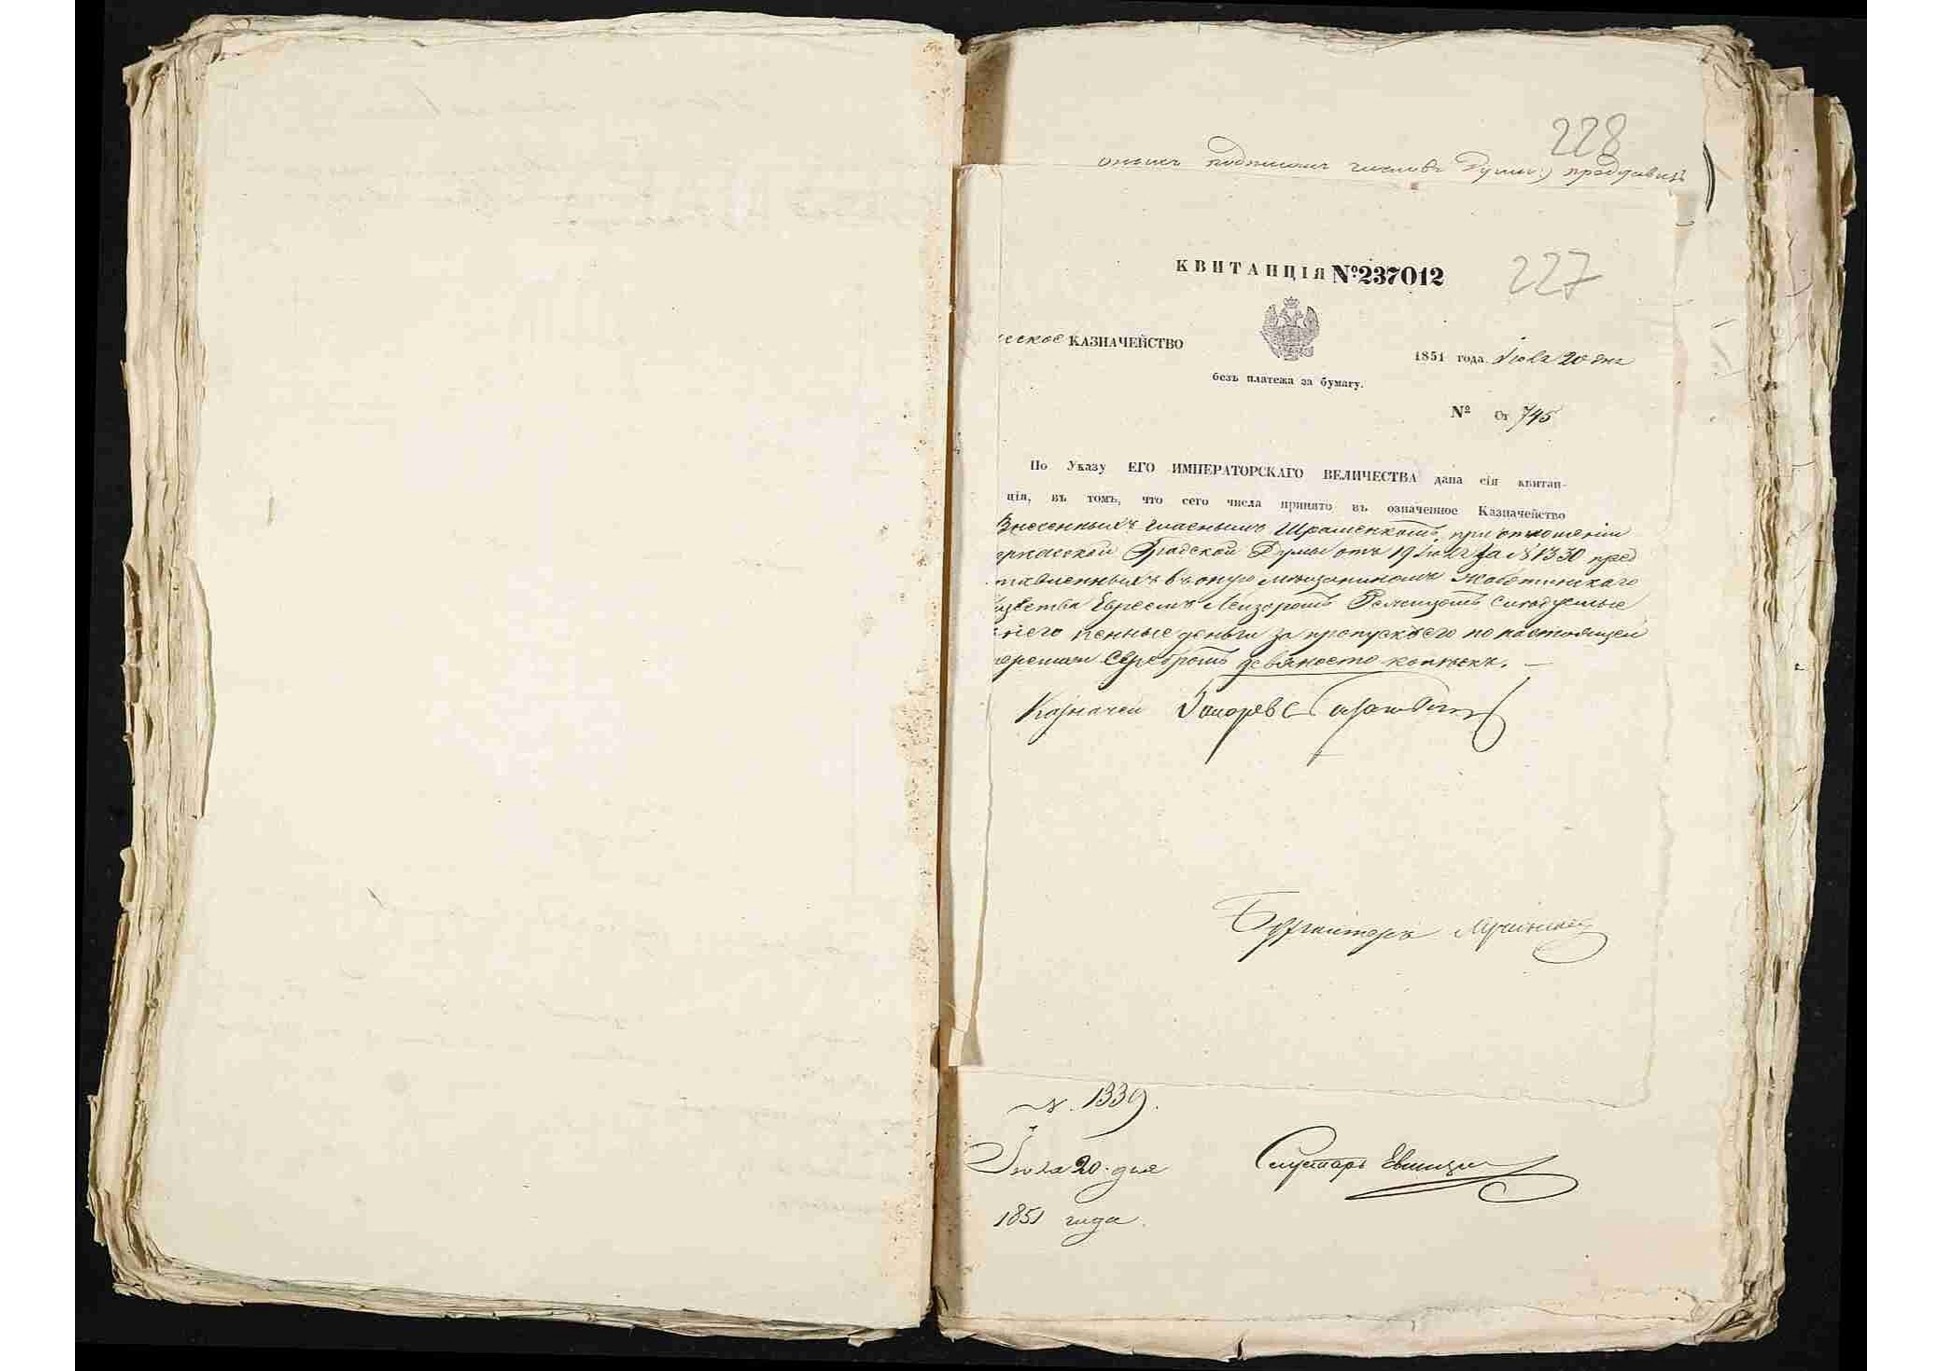 228
оныхъ подписомъ членовъ Думы:) предъавитъ
КВИТАНЦІЯ №237012
227
сское КАЗНАЧЕЙСТВО
1851 года Іюля 20 дня
безъ платежа за бумагу.
№ Ст 745
По Указу ЕГО ИМПЕРАТОРСКАГО ВЕЛИЧЕСТВА дана сія квитан-
ція, въ томъ, что сего числа принято въ означенное Казначейство
Внесенныхъ гласнымъ Шраменкомъ при отношеніи
еркасской Градской Думы отъ 19 Іюля за №1330 пред
тавленныхъ въ оную мѣщаниномъ Жаботинскаго
Евреемъ Лейзоромъ слѣдуемые
него пенные деньги за пропускъ его по настоящей
серебромъ девяносто копѣекъ.
Казначей
Бухгалтеръ
№. 1339.
Іюля 20. дня
1851 года.
Секретарь